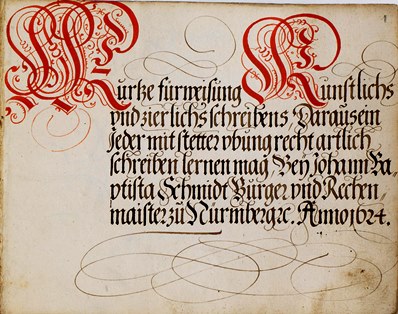 Kurtze fürweisung Kunstlichs
vnd zierlichs schreibens, Daraus ein
Jeder mit stetter vbung recht artlich
schreiben lernen mag, Bey Johann Ba„
ptista Schmidt Bürger vnd Rechen„
maister zu Nürmberg ꝛc. Anno 1624.